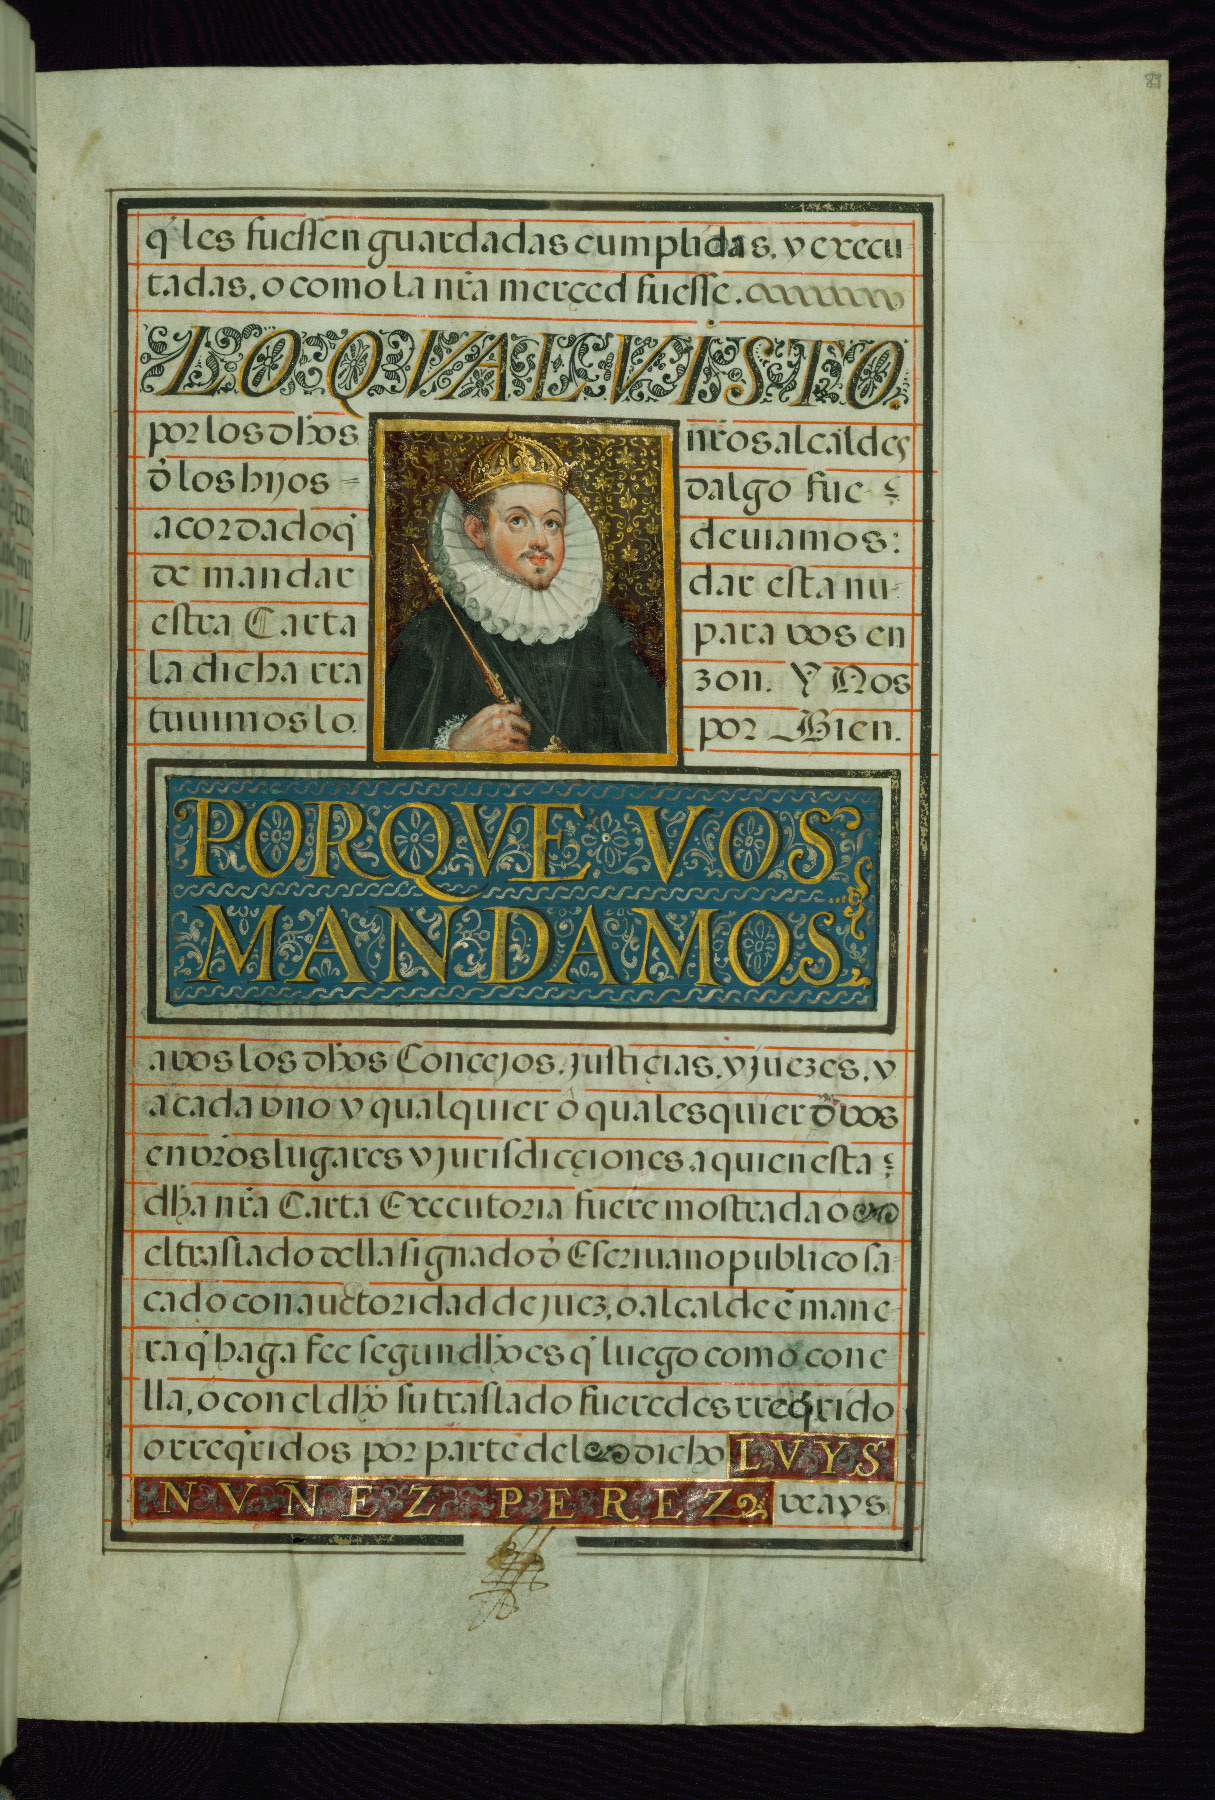 89
q̃ les fuessen guardadas cumplidas, y execu-
tadas, o como la nr̃a merçed fuesse.
LO QVAL VISTO
por los dhõs nr̃os alcaldes
d̃ los hijos = dalgo fue
acordado q̃ deuiamos:
de mandar dar esta nu-
estra Carta para vos en
la dicha rra zon. Y Nos
tuuimoslo. por Bien.
PORQVE VOS
MANDAMOS
a vos los dhõs Conçejos, justiçias, y juezes, y
a cada vno y qualquier o qualesquier d̃ vos
en vr̃os lugares y jurisdicçiones a quien esta
dhã nr̃a Carta Executoria fuere mostrada o
el traslado della signado d̃ Escriuano publico sa-
cado con auctoridad de juez, o alcalde ẽ mane-
ra q̃ haga fee segun dhõ es q̃ luego como con e-
lla, o con el dhõ su traslado fueredes rreq̃rido
o rreq̃ridos por parte del dicho LVYS
NVÑEZ PEREZ veays